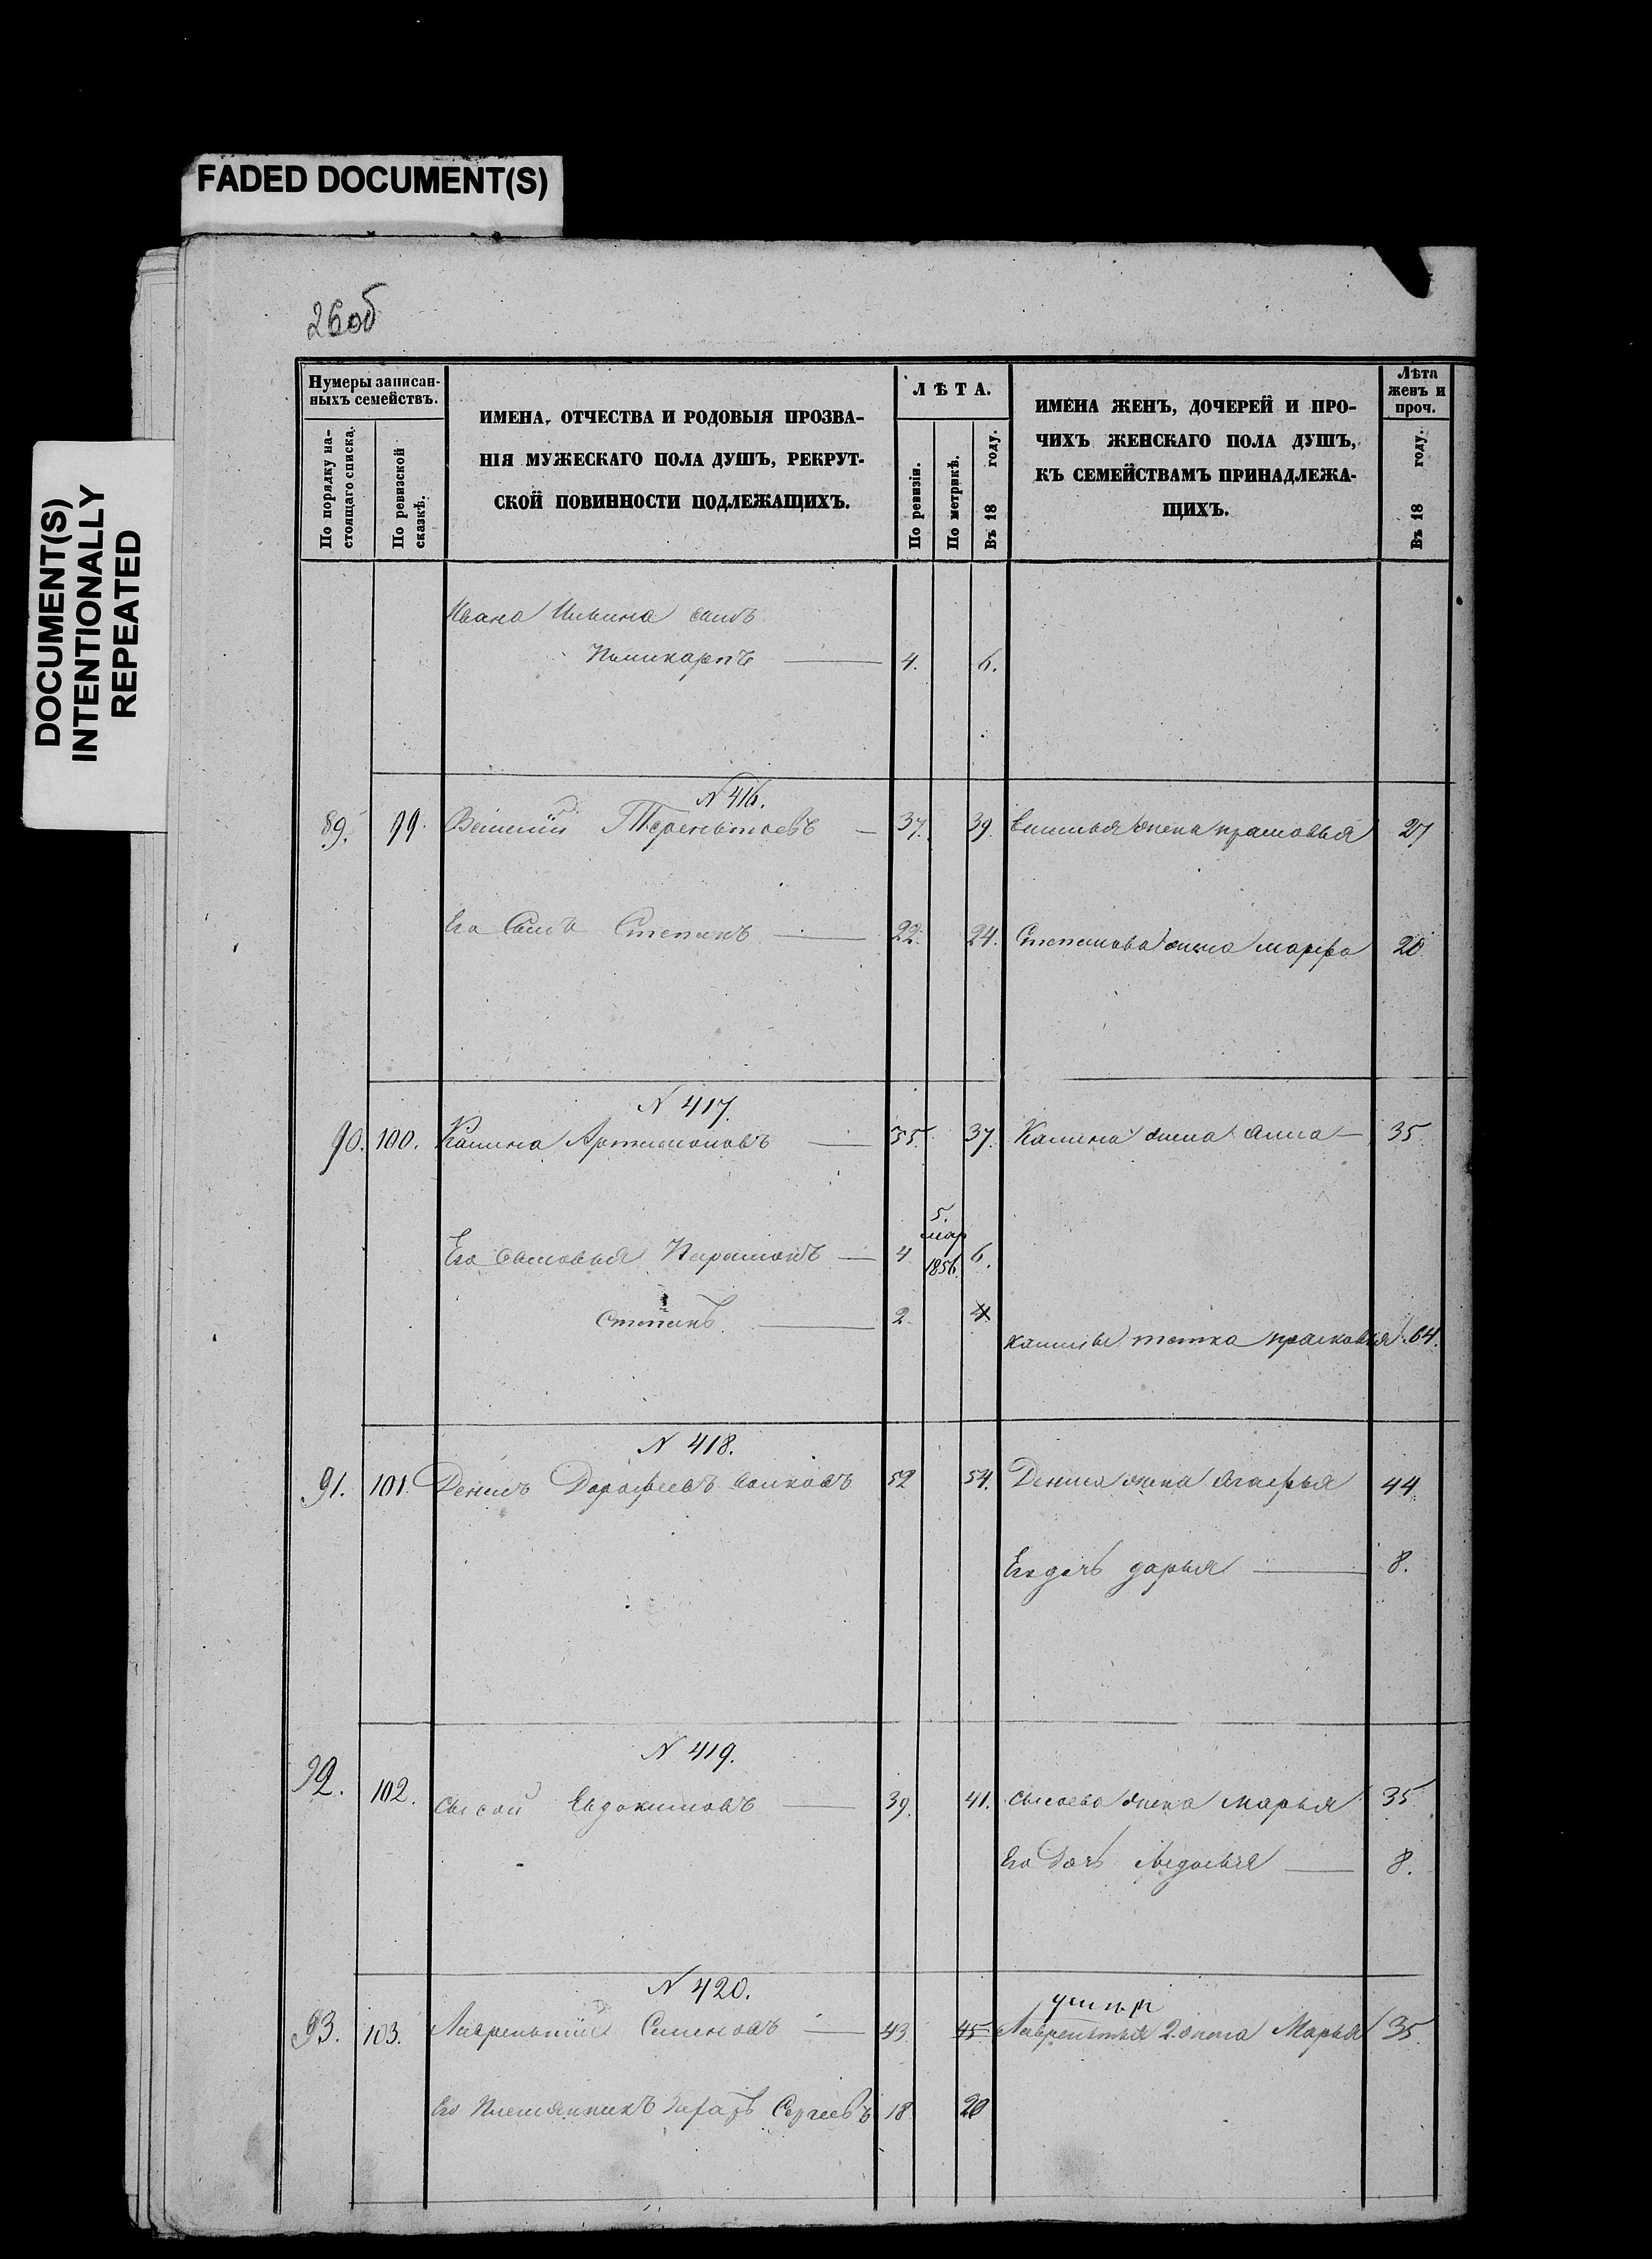 FADED DOCUMENT(S)
DOCUMENT(S)
INTENTIONALLY
REPEATED
26об
Нумеры записан-
ныхъ семействъ.
По порядку на-
стоящаго списка.
По ревизской
сказкѣ.
ИМЕНА, ОТЧЕСТВА И РОДОВЫЯ ПРОЗВА-
НІЯ МУЖЕСКАГО ПОЛА ДУШЪ, РЕКРУТ-
СКОЙ ПОВИННОСТИ ПОДЛЕЖАЩИХЪ.
ЛѢТА.
По ревизіи.
По метрикѣ.
Въ 18 году.
ИМЕНА ЖЕНЪ, ДОЧЕРЕЙ И ПРО-
ЧИХЪ ЖЕНСКАГО ПОЛА ДУШЪ,
КЪ СЕМЕЙСТВАМЪ ПРИНАДЛЕЖА-
ЩИХЪ.
Лѣта
женъ и
проч.
Въ 18 году.
Ивана Ильина сынъ
Поликарпъ 4. 6.
N 416.
89. 99. Терентьевъ 37. 39. жена 27
Его сынъ Степанъ 22. 24. Степанова жена марфа 20
N 417.
90. 100. Калина Артамоновъ 35. 37. Калины жена анна 35
5.
мар
1856
Его сыновья Парамонъ 4 6.
Степанъ 2 4
Калины тетка прасковья 64.
N 418.
91. 101. Денисъ Дорофеевъ 52 54. Дениса жена Агафья 44
Его дочь дарья 8.
N 419.
92. 102. Сысой Евдокимовъ 39. 41. Сысоева жена марья 35
Его дочь 8.
N 420.
93. 103. Лаврентий Семеновъ 43. 45 Лаврентья 2. жена Марья 35
Его Племянникъ Сергеевъ 18 20